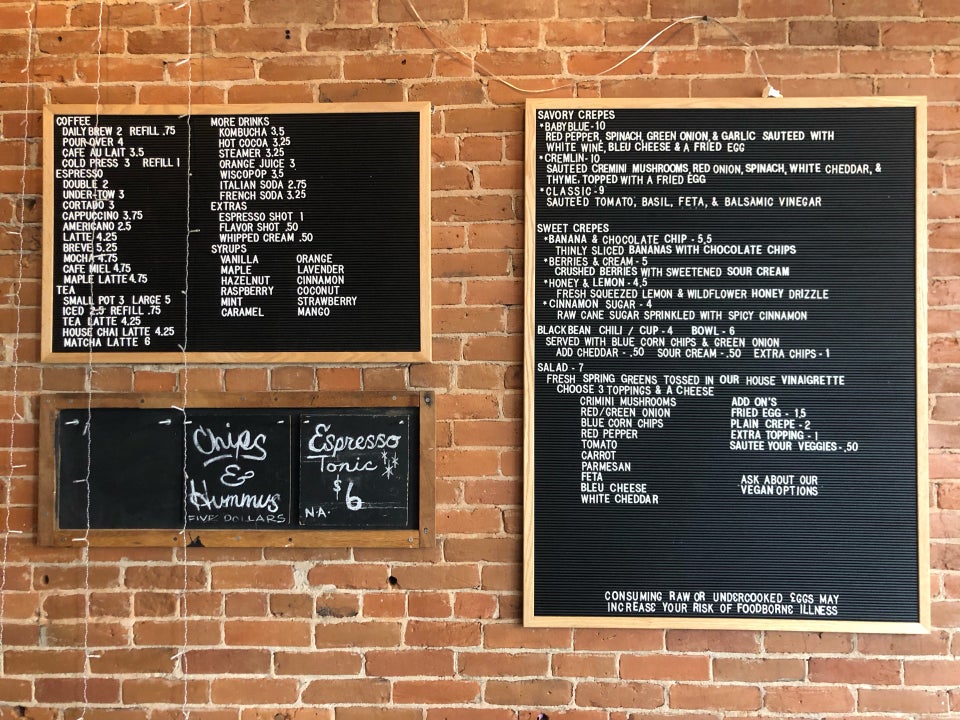 COFFEE
DAILY BREW 2 REFILL .75
POUR OVER 4
CAFE AU LAIT 3.5
COLD PRESS 3 REFILL 1
ESPRESSO
DOUBLE 2
UNDER-TOW 3
CORTADO 3
CAPPUCCINO 3.75
AMERICANO 2.5
LATTE 4.25
BREVE 5.25
MOCHA 4.75
CAFE MIEL 4.75
MAPLE LATTE 4.75
TEA
SMALL POT 3 LARGE 5
ICED 2.5 REFILL .75
TEA LATTE 4.25
HOUSE CHAI LATTE 4.25
MATCHA LATTE 6
MORE DRINKS
KOMBUCHA 3.5
HOT COCOA 3.25
STEAMER 3.25
ORANGE JUICE 3
WISCOPOP 3.5
ITALIAN SODA 2.75
FRENCH SODA 3.25
EXTRAS
ESPRESSO SHOT 1
FLAVOR SHOT .50
WHIPPED CREAM .50
SYRUPS
VANILLA ORANGE
MAPLE LAVENDER
HAZELNUT CINNAMON
RASPBERRY COCONUT
MINT STRAWBERRY
CARAMEL MANGO
Chips
&
Hummus
FIVE DOLLARS
Espresso
Tonic
$6
N.A.
SAVORY CREPES
*BABY BLUE - 10
RED PEPPER, SPINACH, GREEN ONION, & GARLIC SAUTEED WITH
WHITE WINE, BLEU CHEESE & A FRIED EGG
*CREMLIN - 10
SAUTEED CREMINI MUSHROOMS, RED ONION, SPINACH, WHITE CHEDDAR, &
THYME, TOPPED WITH A FRIED EGG
*CLASSIC - 9
SAUTEED TOMATO, BASIL, FETA, & BALSAMIC VINEGAR
SWEET CREPES
*BANANA & CHOCOLATE CHIP - 5.5
THINLY SLICED BANANAS WITH CHOCOLATE CHIPS
*BERRIES & CREAM - 5
CRUSHED BERRIES WITH SWEETENED SOUR CREAM
*HONEY & LEMON - 4.5
FRESH SQUEEZED LEMON & WILDFLOWER HONEY DRIZZLE
*CINNAMON SUGAR - 4
RAW CANE SUGAR SPRINKLED WITH SPICY CINNAMON
BLACK BEAN CHILI / CUP - 4 BOWL - 6
SERVED WITH BLUE CORN CHIPS & GREEN ONION
ADD CHEDDAR - .50 SOUR CREAM - .50 EXTRA CHIPS - 1
SALAD - 7
FRESH SPRING GREENS TOSSED IN OUR HOUSE VINAIGRETTE
CHOOSE 3 TOPPINGS & A CHEESE
CRIMINI MUSHROOMS
RED/GREEN ONION
BLUE CORN CHIPS
RED PEPPER
TOMATO
CARROT
PARMESAN
FETA
BLEU CHEESE
WHITE CHEDDAR
ADD ON'S
FRIED EGG - 1.5
PLAIN CREPE - 2
EXTRA TOPPING - 1
SAUTEE YOUR VEGGIES - .50
ASK ABOUT OUR
VEGAN OPTIONS
CONSUMING RAW OR UNDERCOOKED EGGS MAY
INCREASE YOUR RISK OF FOODBORNE ILLNESS